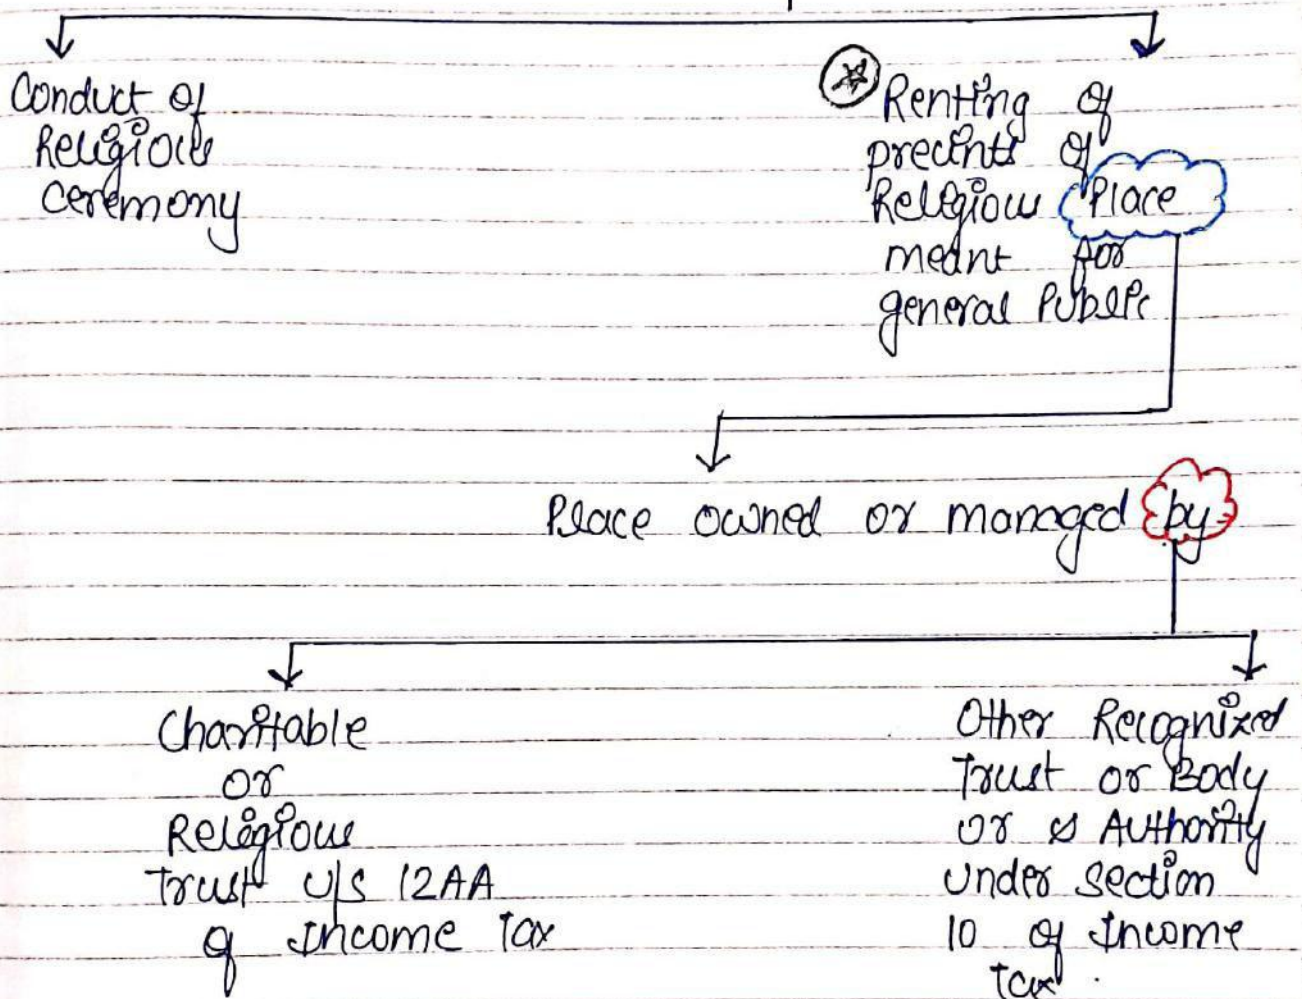 Conduct of
Religious
ceremony
Renting of
precints of
Religious Place
meant for
general Public
Place owned or managed by
Charitable
or
Religious
Trust u/s 12AA
of Income Tax
Other Recognized
Trust or Body
or Authority
under section
10 of Income
Tax.